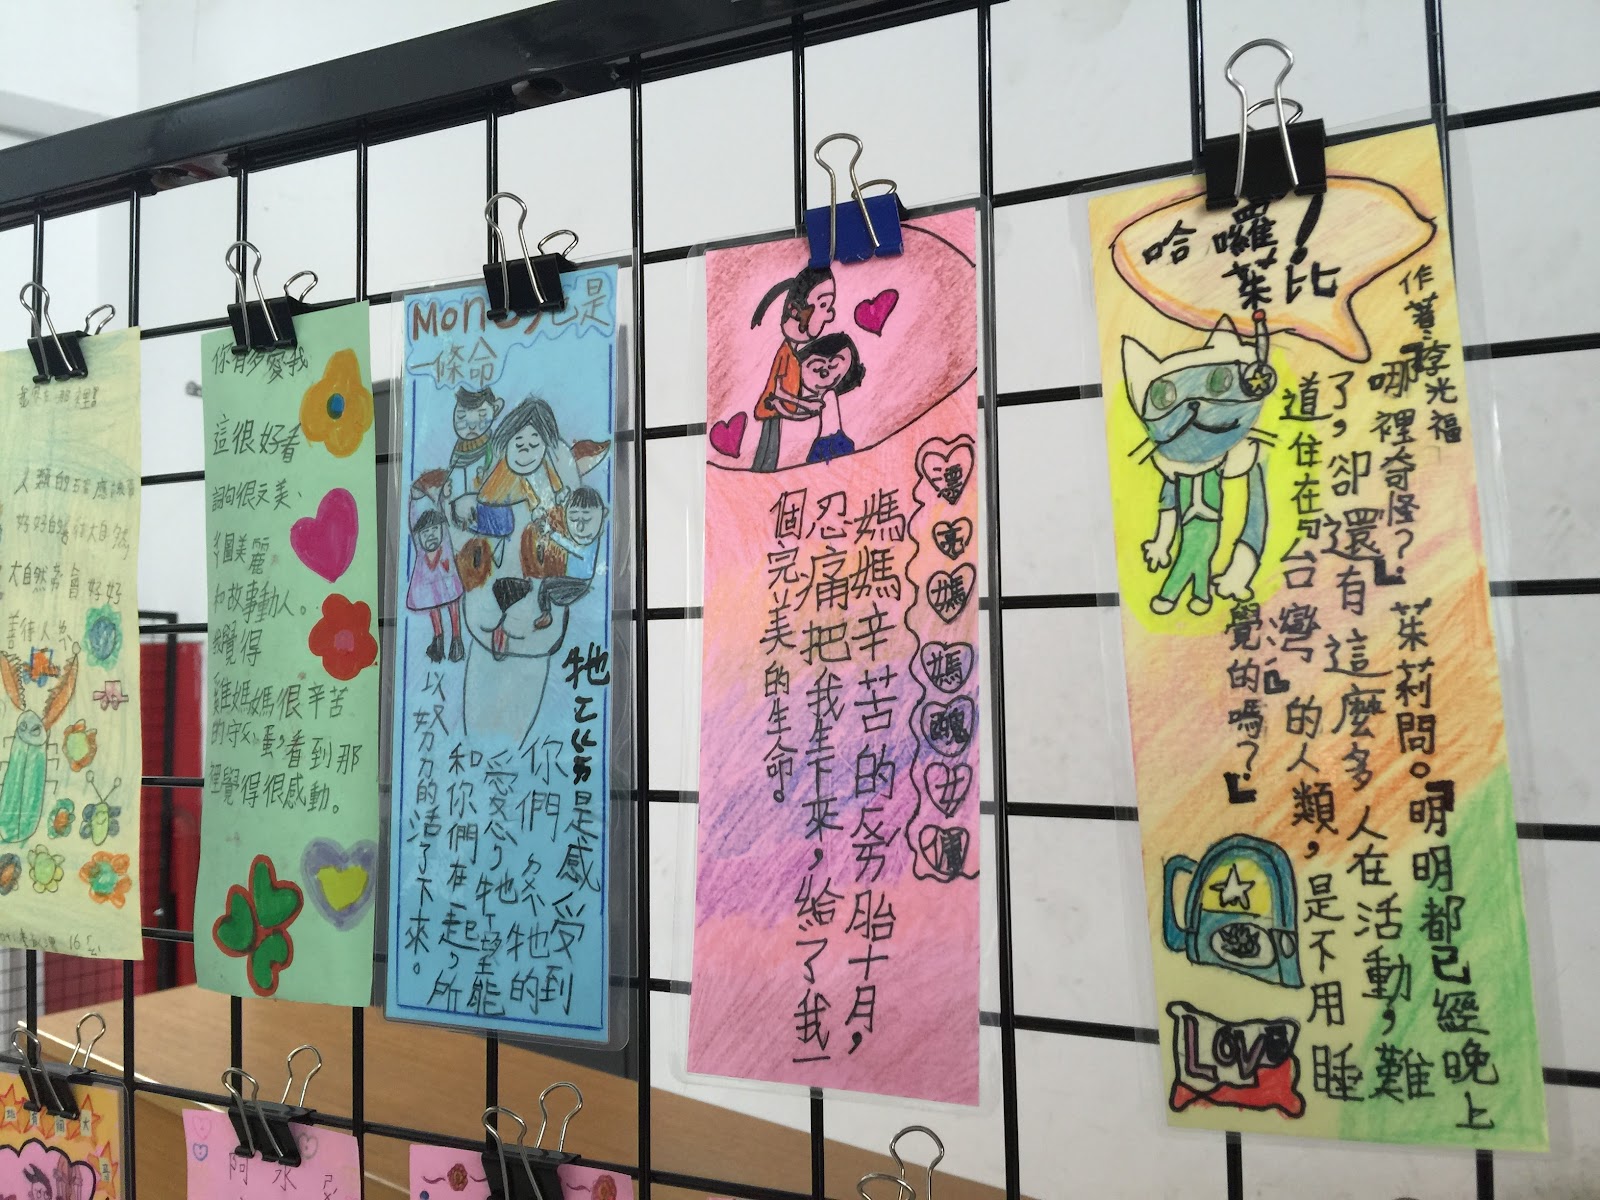 大自然
好好
善待人
你有多愛我
這很好看
詞句很又美、
圖美麗
和故事動人。
覺得
雞媽媽很辛苦
的守 蛋，看到那
裡覺得很感動。
Money也是
一條命
牠 是感受到
你們 牠的
愛心，牠 望能
和你們在一起，所
以努力的活了下來。
漂亮媽媽醜女
媽媽辛苦的 胎十月，
忍痛把我生下來，給了我一
個完美的生命。
哈囉！
茱比
作著：李光福
哪裡奇怪？」茱莉問。「明明都已經晚上
了，卻還有這麼多人在活動，難
道住在台灣的人類，是不用睡
覺的嗎？」
LOVE
阿永